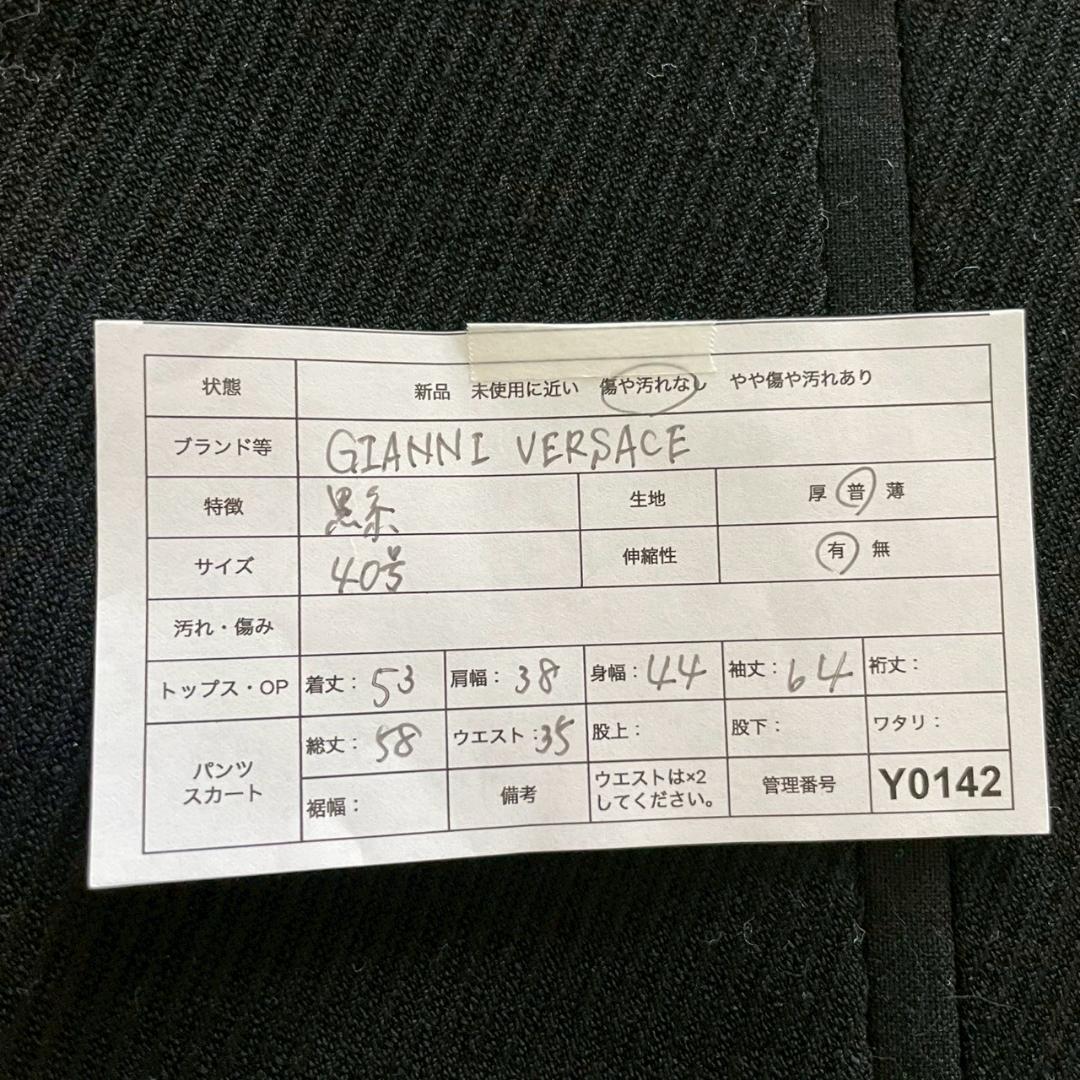 状態 新品 未使用に近い 傷や汚れなし やや傷や汚れあり
ブランド等 GIANNI VERSACE
特徴 黒系 生地 厚 普 薄
サイズ 40号 伸縮性 有 無
汚れ・傷み
トップス・OP 着丈：53 肩幅：38 身幅：44 袖丈：64 裄丈：
パンツ スカート 総丈：58 ウエスト：35 股上： 股下： ワタリ：
裾幅： 備考 ウエストは×2 してください。 管理番号 Y0142